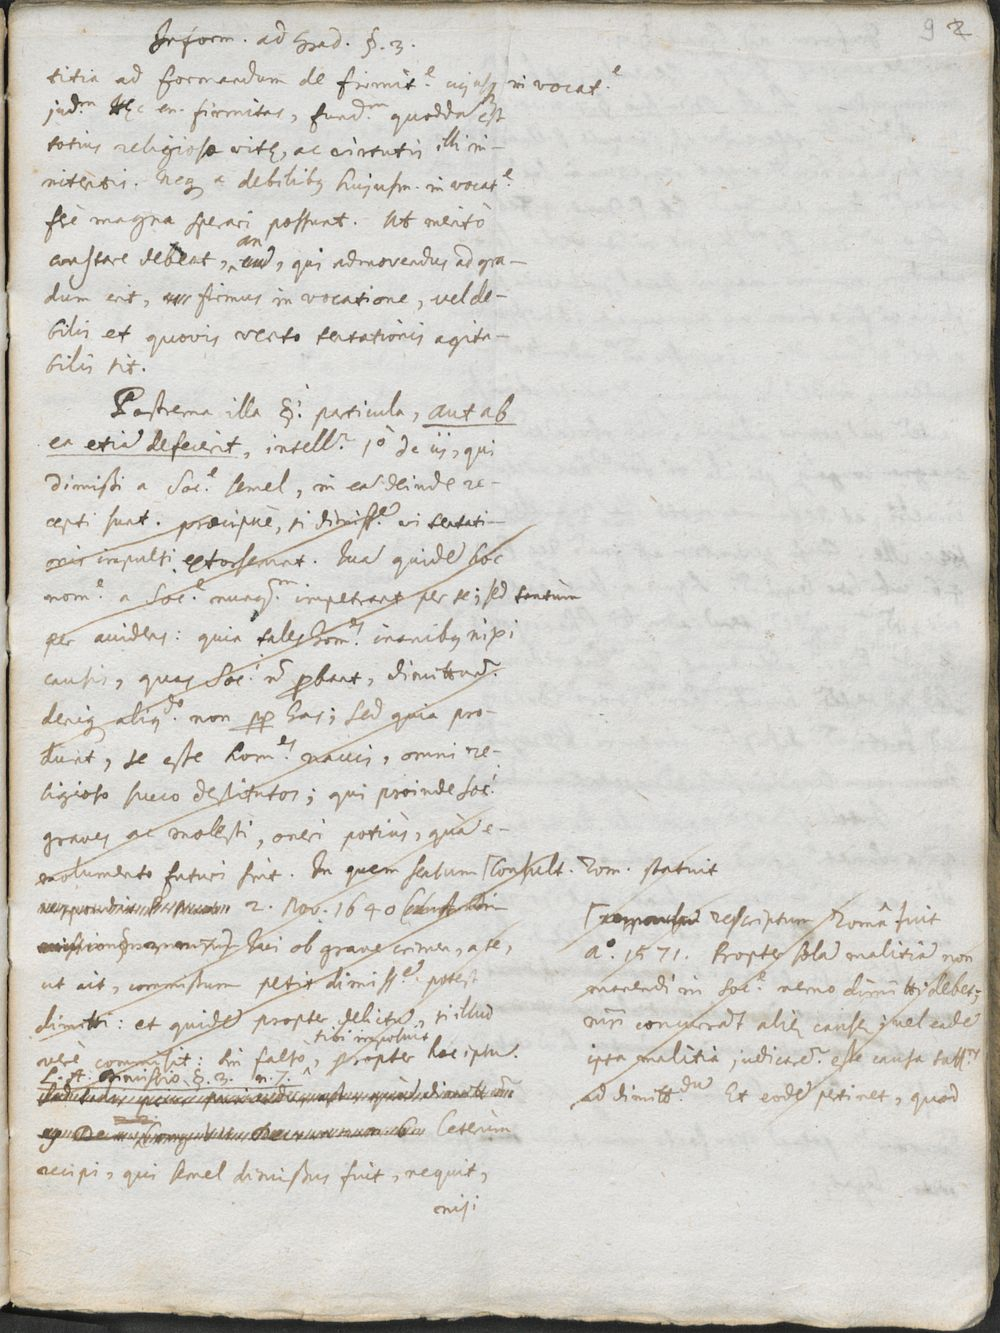 92
Inform. ad Grad. §. 3.
titia ad formandum de firmit.e cujusq in vocat.e
jud.m Hęc en. firmitas, fund.m quoddā est
totius religiosę vitę, ac virtutis illi in-
nitentis. Neq a debilibq hujusm. in vocat.e
szè magna sperari possunt. Ut meritò
constare debeat, an, qui admovendus ad gra-
dum erit, firmus in vocatione, vel de-
bilis et quovis vento tentationis agita-
bilis sit.
Postrema illa §.i particula, aut ab
ea etiā defecerit, intell.r 1o de iis, qui
dimissi a Soc.e semel, in eā deinde re-
cepti sunt. præcipuè, si dimiss.ē vi tentati-
onis impulsi extorserunt. Quā quidē hoc
nom.e a Soc.e nunq.m impetrant per se; sed tantùm
per accidens: quia tales hom.es inanibq nixi
causis, quas Soc. ñ pbant, dimittunt.r
deniq aliq.do non pp has; sed quia pro-
dunt, se esse hom.es nauci, omni re-
ligioso succo destitutos; qui proinde Soc.i
graves ac molesti, oneri potiùs, quā e-
molumento futuri sint. In quem sensum [Consult. Rom. statuit
2. Nov. 1640
ob grave crimen, a se,
ut ait, commissum petit dimiss.ē potest
dimitti: et quidē propter delictū, si illud
verè commisit: si falso, sibi imposuit, propter hoc ipsū.
L. A. Dimissio §. 3. n. 7.
Ceterùm
recipi, qui semel dimissus fuit, nequit,
nisi
[rescriptum Româ fuit
aº. 1571. Propter solā malitiā non
manendi in Soc.e nemo dimitti debet,
nisi concurrāt alię causę; vel eadē
ipsa malitia judicare.r esse causa suff.ns
ad dimitt.dū Et eodē pertinet, quod